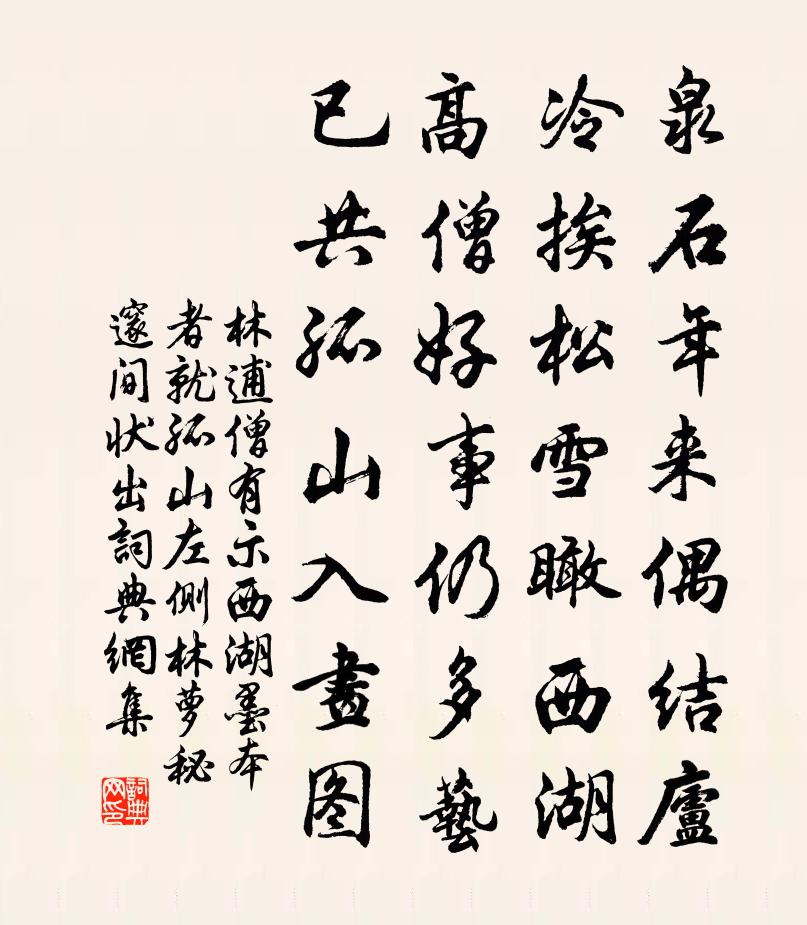 泉石年来偶结廬
冷挨松雪瞰西湖
高僧好事仍多藝
已共孤山入畫图
林逋僧有示西湖墨本
者就孤山左側林萝秘
邃间状出詞典網集
詞典网印